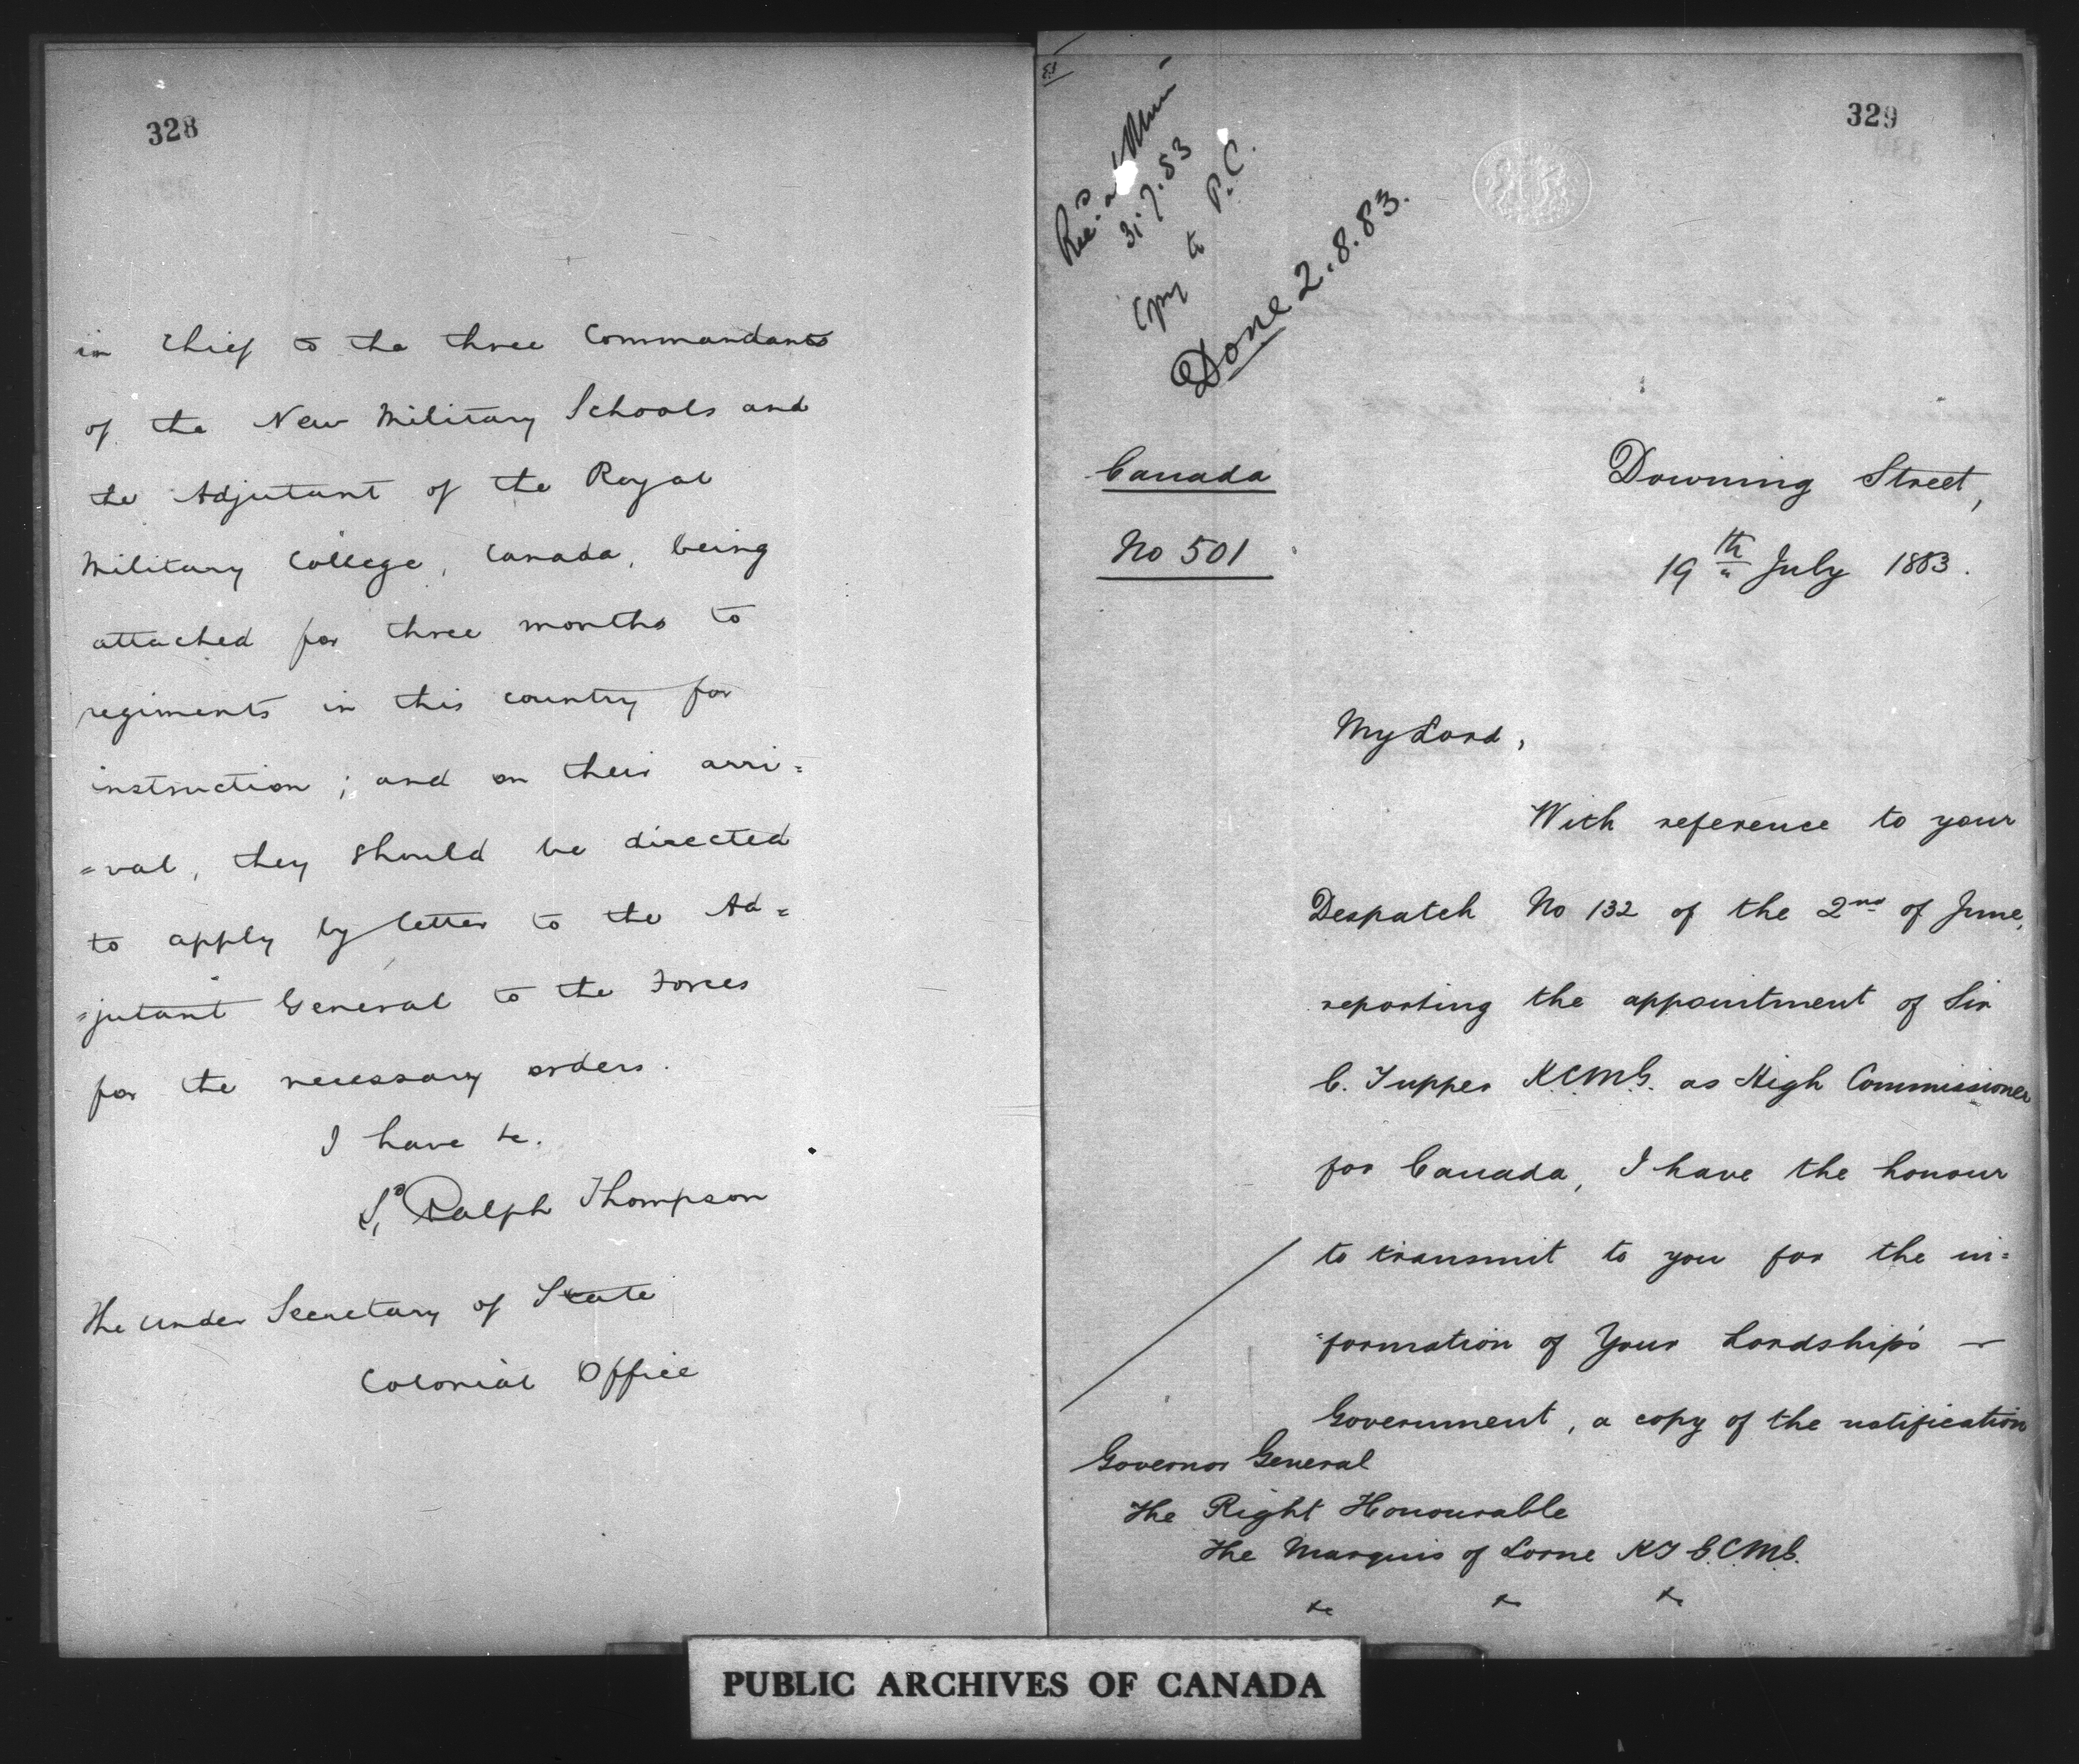 328
in Chief to the three Commandants
of the New Military Schools and
the Adjutant of the Royal
Military College, Canada, being
attached for three months to
regiments in this country for
instruction; and on their arri=
=val, they should be directed
to apply by letter to the Ad=
=jutant General to the Forces
for the necessary orders.
I have &c.
Sd Ralph Thompson
The Under Secretary of State
Colonial Office
329
Recd
31.7.83
Copy to P.C.
Done 2.8.83.
Canada
No 501
Downing Street,
19th July 1883.
My Lord,
With reference to your
Despatch No 132 of the 2nd of June,
reporting the appointment of Sir
C. Tupper K.C.M.G. as High Commissioner
for Canada, I have the honour
to transmit to you for the in=
=formation of Your Lordship's
Government, a copy of the notification
Governor General
The Right Honourable
The Marquis of Lorne KT G.C.M.G.
&c &c &c
PUBLIC ARCHIVES OF CANADA